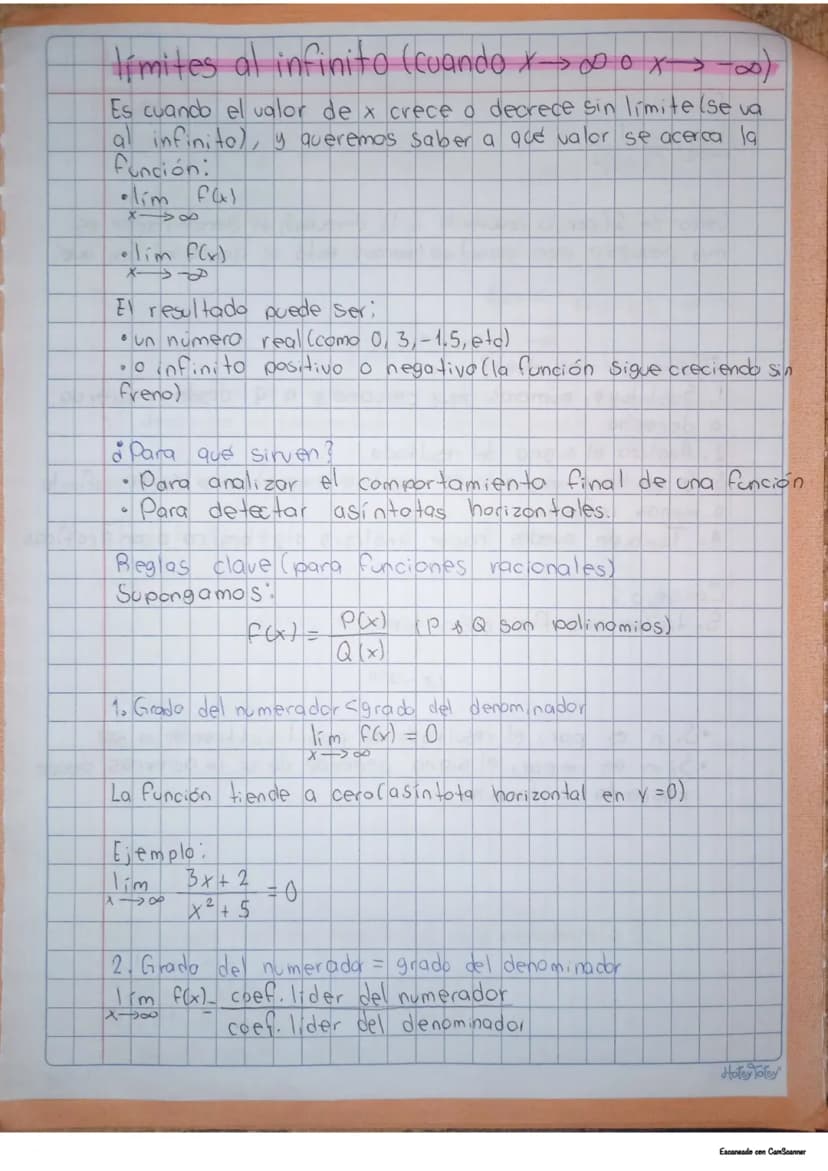 límites al infinito (cuando x→∞ o x→-∞)
Es cuando el valor de x crece o decrece sin límite (se va
al infinito), y queremos saber a qué valor se acerca la
función:
•lím f(x)
x→∞
•lím f(x)
x→-∞
El resultado puede ser:
•un número real (como 0, 3, -1.5, etc)
•o infinito positivo o negativo (la función sigue creciendo sin
freno)
¿Para qué sirven?
•Para analizar el comportamiento final de una función
•Para detectar asíntotas horizontales.
Reglas clave (para funciones racionales)
Supongamos:
f(x) = P(x) / Q(x) (P y Q son polinomios)
1. Grado del numerador < grado del denominador
lím f(x) = 0
x→∞
La función tiende a cero (asíntota horizontal en y=0)
Ejemplo:
lím 3x+2 / x²+5 = 0
x→∞
2. Grado del numerador = grado del denominador
lím f(x) = coef. líder del numerador
x→∞ coef. líder del denominador
HotsyTotsy
Escaneado con CamScanner